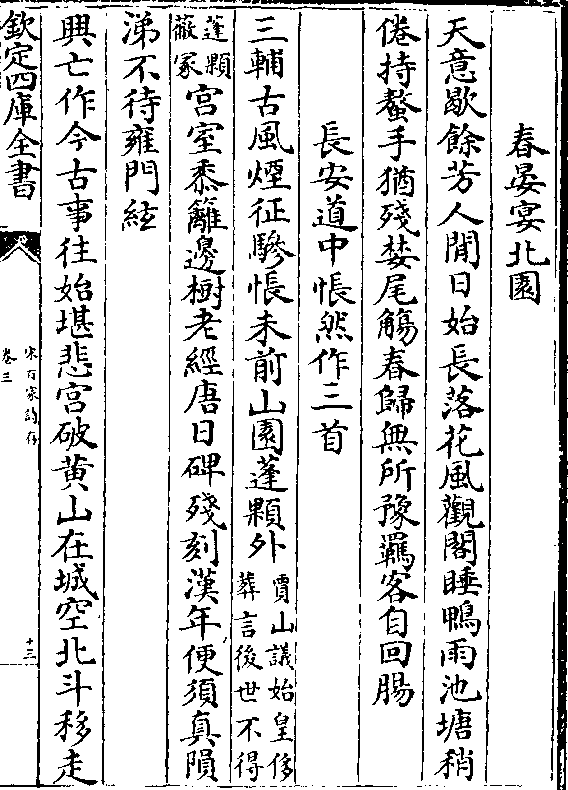 春晏宴北園
天意歇餘芳人閒日始長落花風觀閣睡鴨雨池塘稍
倦持螯手猶殘婪尾觴春歸無所豫羈客自回腸
長安道中悵然作三首
三輔古風煙征驂悵未前山園蓬顆外賈山議始皇侈
葬言後世不得
蓬顆
蔽冢宮室黍籬邊樹老經唐日碑殘刻漢年便須真隕
涕不待雍門絃
興亡作今古事往始堪悲宮破黄山在城空北斗移走
欽定四庫全書
宋百家詩存
卷三
十三